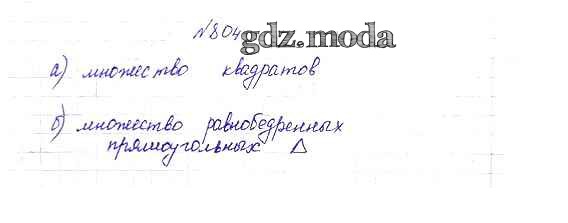 №804
gdz.moda
а) множество квадратов
б) множество равнобедренных
прямоугольных Δ